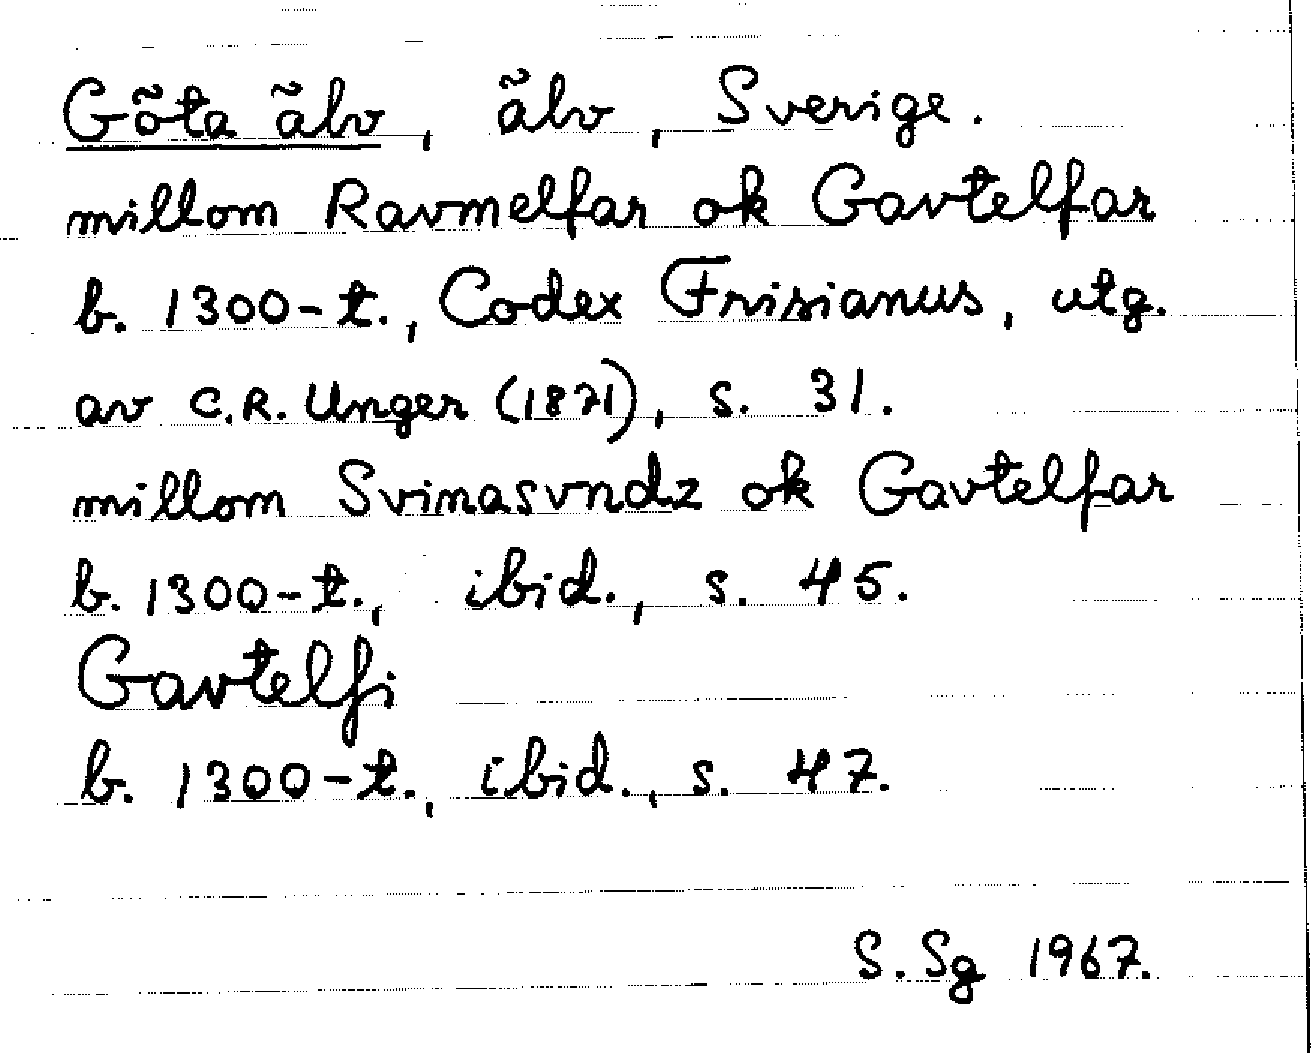 Göta älv, älv, Sverige.
millom Ravmelfar ok Gavtelfar
b. 1300-t., Codex Frisianus, utg.
av C.R. Unger (1871), s. 31.
millom Svinasvndz ok Gavtelfar
b. 1300-t., ibid., s. 45.
Gavtelfi
b. 1300-t., ibid., s. 47.
S. Sg 1967.